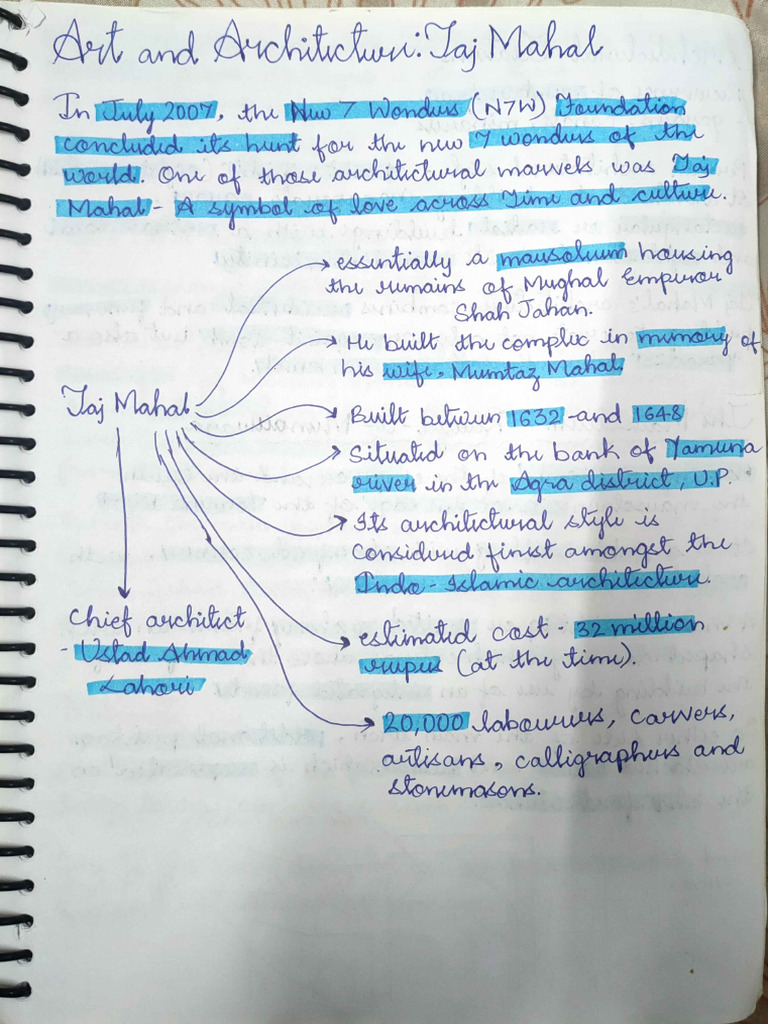 Art and Architecture: Taj Mahal
In July 2007, the New 7 Wonders (N7W) Foundation
concluded its hunt for the new 7 wonders of the
world. One of those architectural marvels was Taj
Mahal - A symbol of love across Time and culture.
→ essentially a mausoleum housing
the remains of Mughal Emperor
Shah Jahan.
→ He built the complex in memory of
his wife, Mumtaz Mahal.
Taj Mahal
→ Built between 1632 - and 1648
→ Situated on the bank of Yamuna
river in the Agra district, U.P.
→ Its architectural style is
considered finest amongst the
Indo-Islamic architecture.
Chief architect
- Ustad Ahmad
Lahori
→ estimated cost - 32 million
rupees (at the time).
→ 20,000 labourers, carvers,
artisans, calligraphers and
stonemasons.